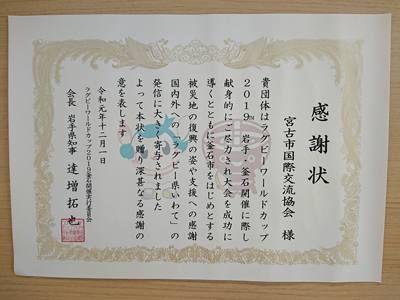 感謝状
宮古市国際交流協会 様
貴団体はラグビーワールドカップ
2019™岩手・釜石開催に際し
献身的にご尽力され大会を成功に
導くとともに釜石市をはじめとする
被災地の復興の姿や支援への感謝
国内外への「ラグビー県いわて」の
発信に大きく寄与されました
よって本状を贈り深甚なる感謝の
意を表します
令和元年十二月一日
ラグビーワールドカップ2019釜石開催実行委員会
会長 岩手県知事 達増拓也